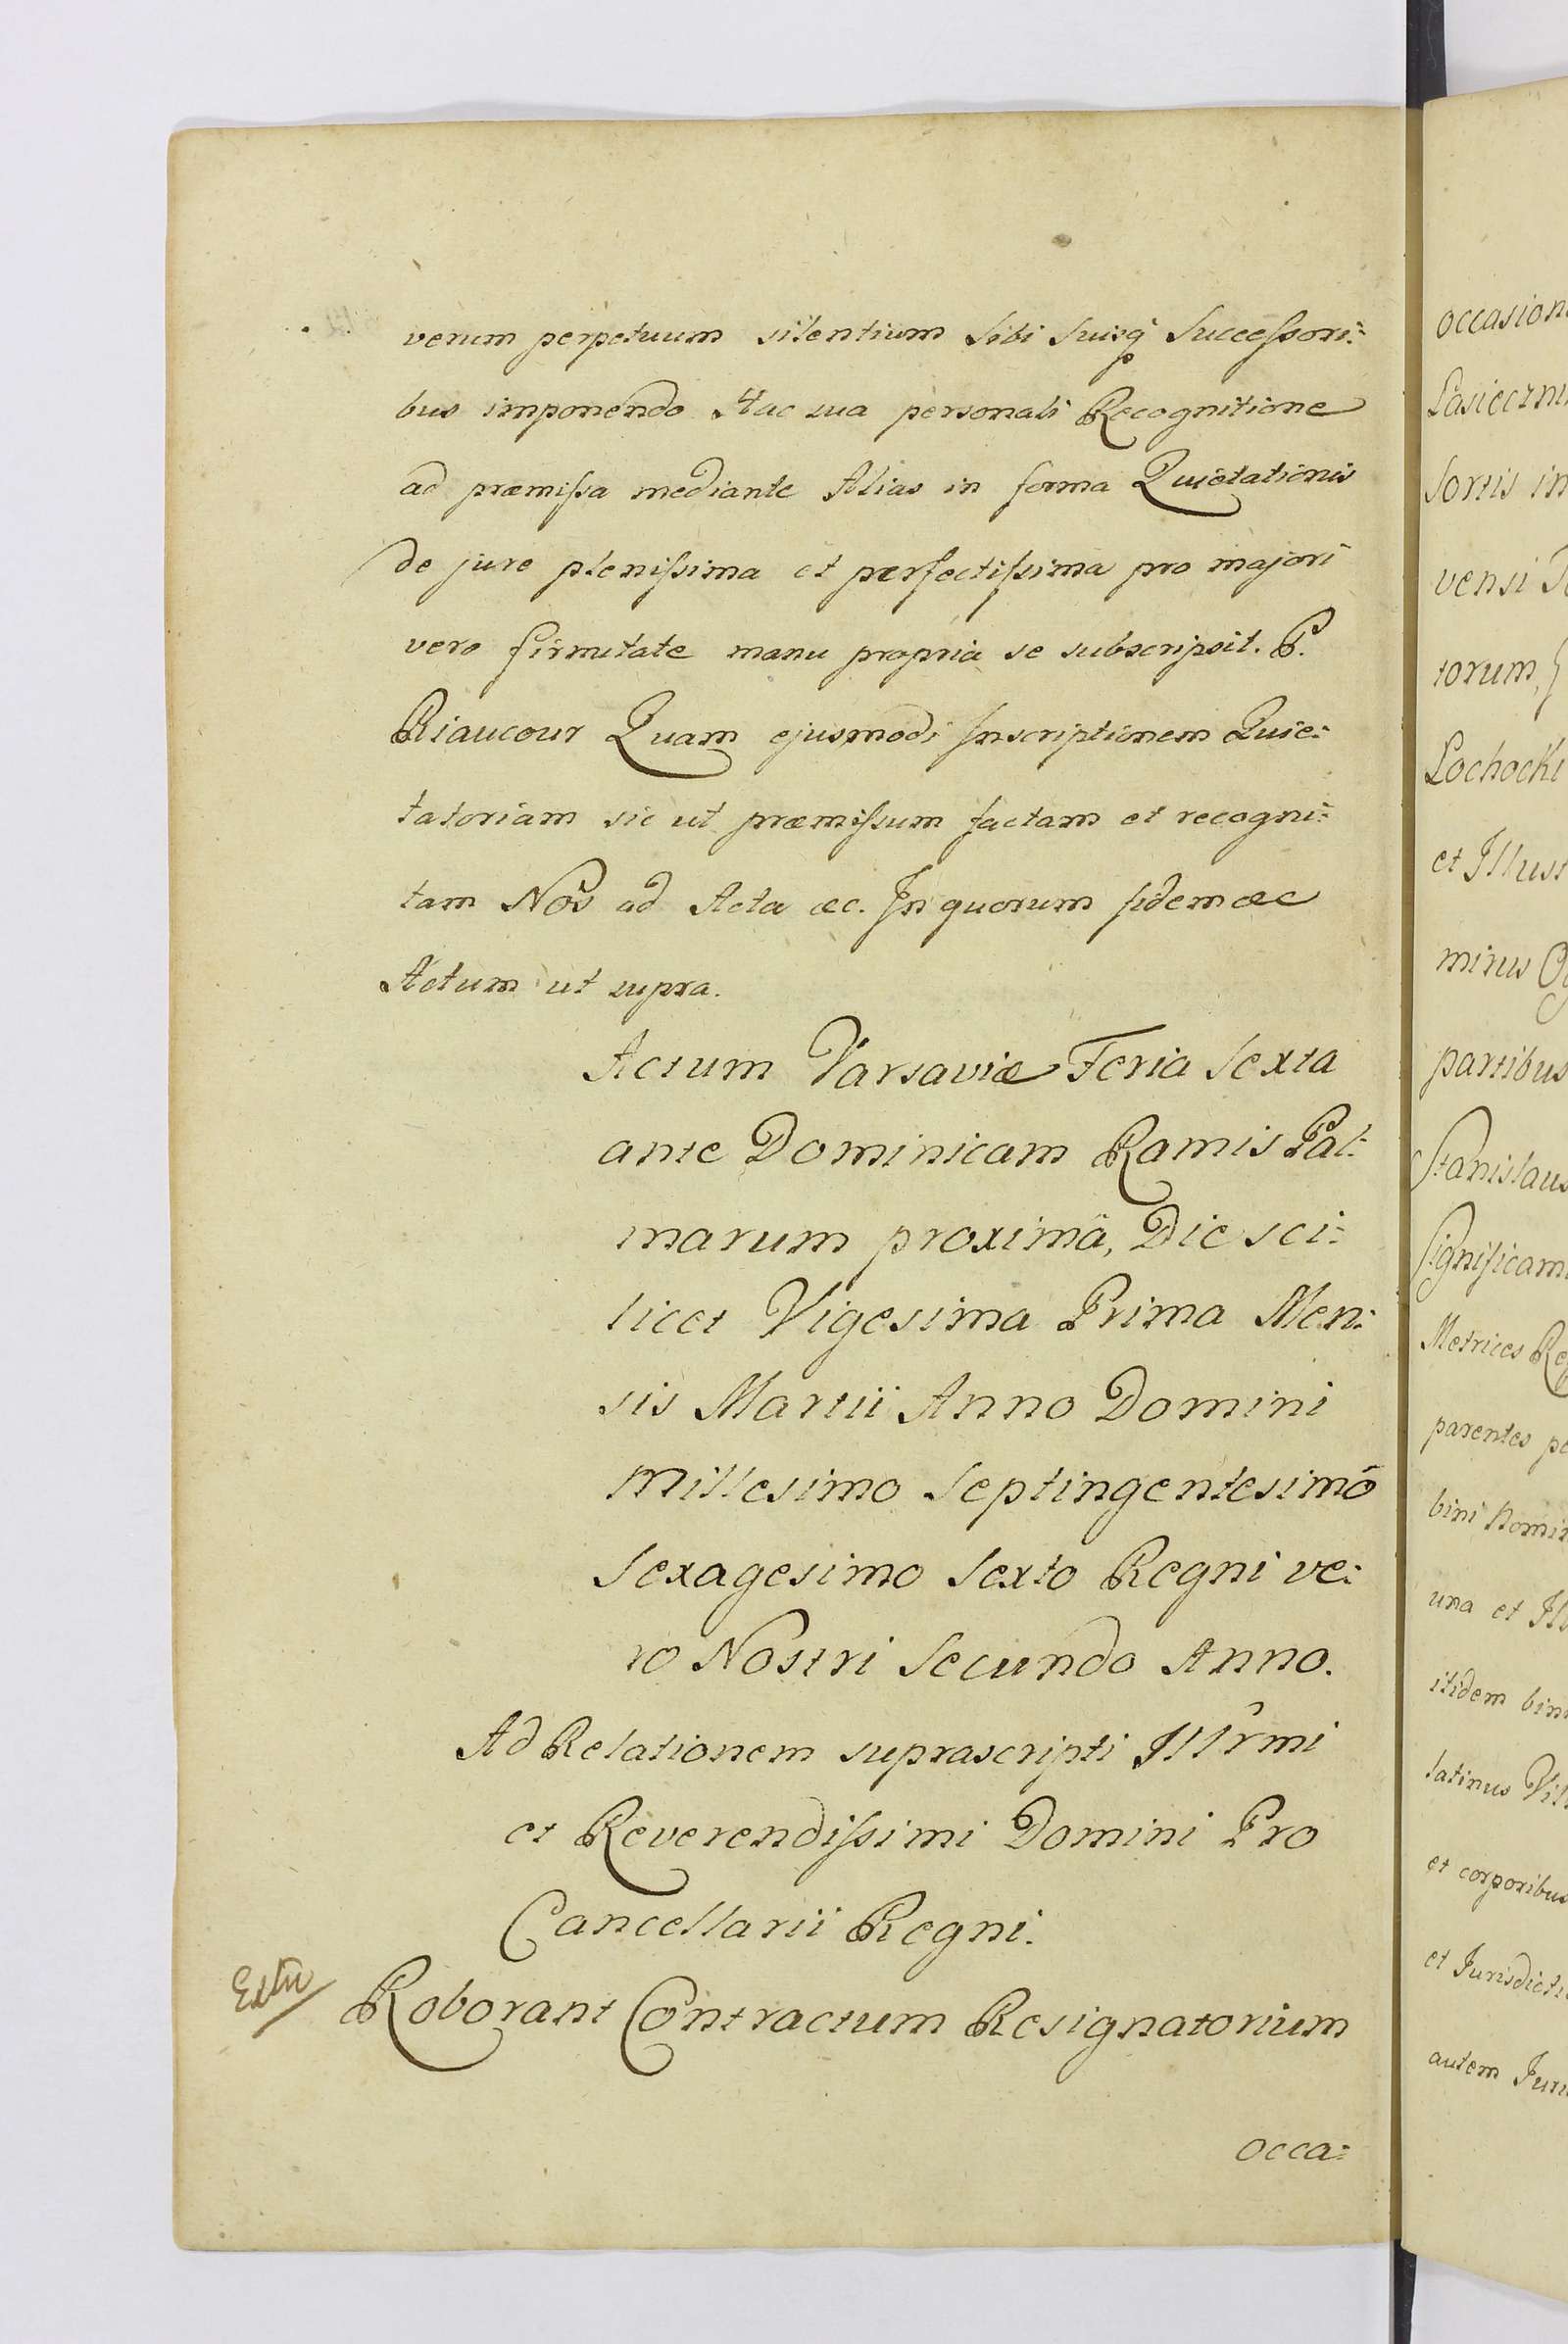 verum perpetuum silentium Sibi Suisq Successori:
bus imponendo Hac sua personali Recognitione
ad præmissa mediante Alias in forma Quietationis
de jure plenissima et perfectissima pro majori
vero firmitate manu propria se subscripsit. P.
Riaucour Quam ejusmodi Inscriptionem Quie:
tatoriam sic ut præmissum factam et recogni:
tam Nos ad Acta æc. In quorum fidem æc
Actum ut supra.
Actum Varsaviæ Feria Sexta
ante Dominicam Ramis Pal:
marum proximâ, Die sci:
licet Vigesima Prima Men:
sis Martii Anno Domini
Millesimo Septingentesimo
Sexagesimo Sexto Regni ve:
ro Nostri Secundo Anno.
Ad Relationem suprascripti Illrmi
et Reverendissimi Domini Pro
Cancellarii Regni.
Roborant Contractum Resignatorium
occa:
occasion
Pasieczni
Sortis in
vensi
torum,
Lochocki
et Illust
minus
partibus
Stanislaus
Significam
Metrices Reg
parentes pe
bini Nomin
una et Ill
itidem bin
latinus Vil
et corporibus
et Jurisdicti
autem Juri